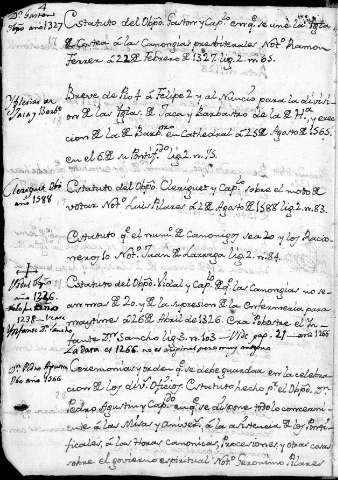 4
Dn. Gaston
Obpo año 1327
Estatuto del Obpo. Gaston y Capo. en q. se une la Igla.
de Cortea á las Canongías presbiterales Noto. Ramon
Ferrer á 22 de Febrero de 1327. lig. 2. n. 65.
Yglesias en
Jaca y Barbo.
Breve de Pio 4 á Felipe 2 y al Nuncio para la divisi-
on de las Iglas. de Jaca y Barbastro de la de Ha. y erec-
cion de la de Barbro. en Cathedral á 25 de Agosto de 1565.
en el 6 de su Pontifdo. lig. 2. n. 75.
Cleriguet Obo
año 1588
Estatuto del Obpo. Cleriguet y Capo. sobre el modo de
votar Noto. Luis Pilares á 2 de Agosto de 1588 lig. 2. n. 83.
Estatuto q. el numo. de Canonigos sea 20 y los Racio-
neros, lo Noto. Juan de Lazarga lig. 2. n. 84.
Vidal Obpo
año 1276
Estatuto del Obpo. Vidal y Capo. de q. las Canongías no se-
an mas de 20. y de la supresion de la Enfermeria para
maytines á 26 de Abril de 1326. Era Pobestre el In-
fante Dn. Sancho lig. 3. n. 103 — Vide pag. 21 — año 1266
La Data es 1266. no es original pero muy antiguo
1238 — Vease
Ynfante Dn. Sancho
Dn. Pedro Agustin
Obo año 1566
Ceremonias y orden q. se debe guardar en la celebra-
cion de los divs. Oficios Estatuto hecho pr. el Obpo. Dn.
Pedro Agustin y Capdo. en q. se dispone todo lo concerni-
ente á las Misas y Anivers. á la asistencia de los Ponti-
ficales, á las Horas Canonicas, Procesiones, y otras cosas
sobre el govierno espiritual Noto. Geronimo Pilares